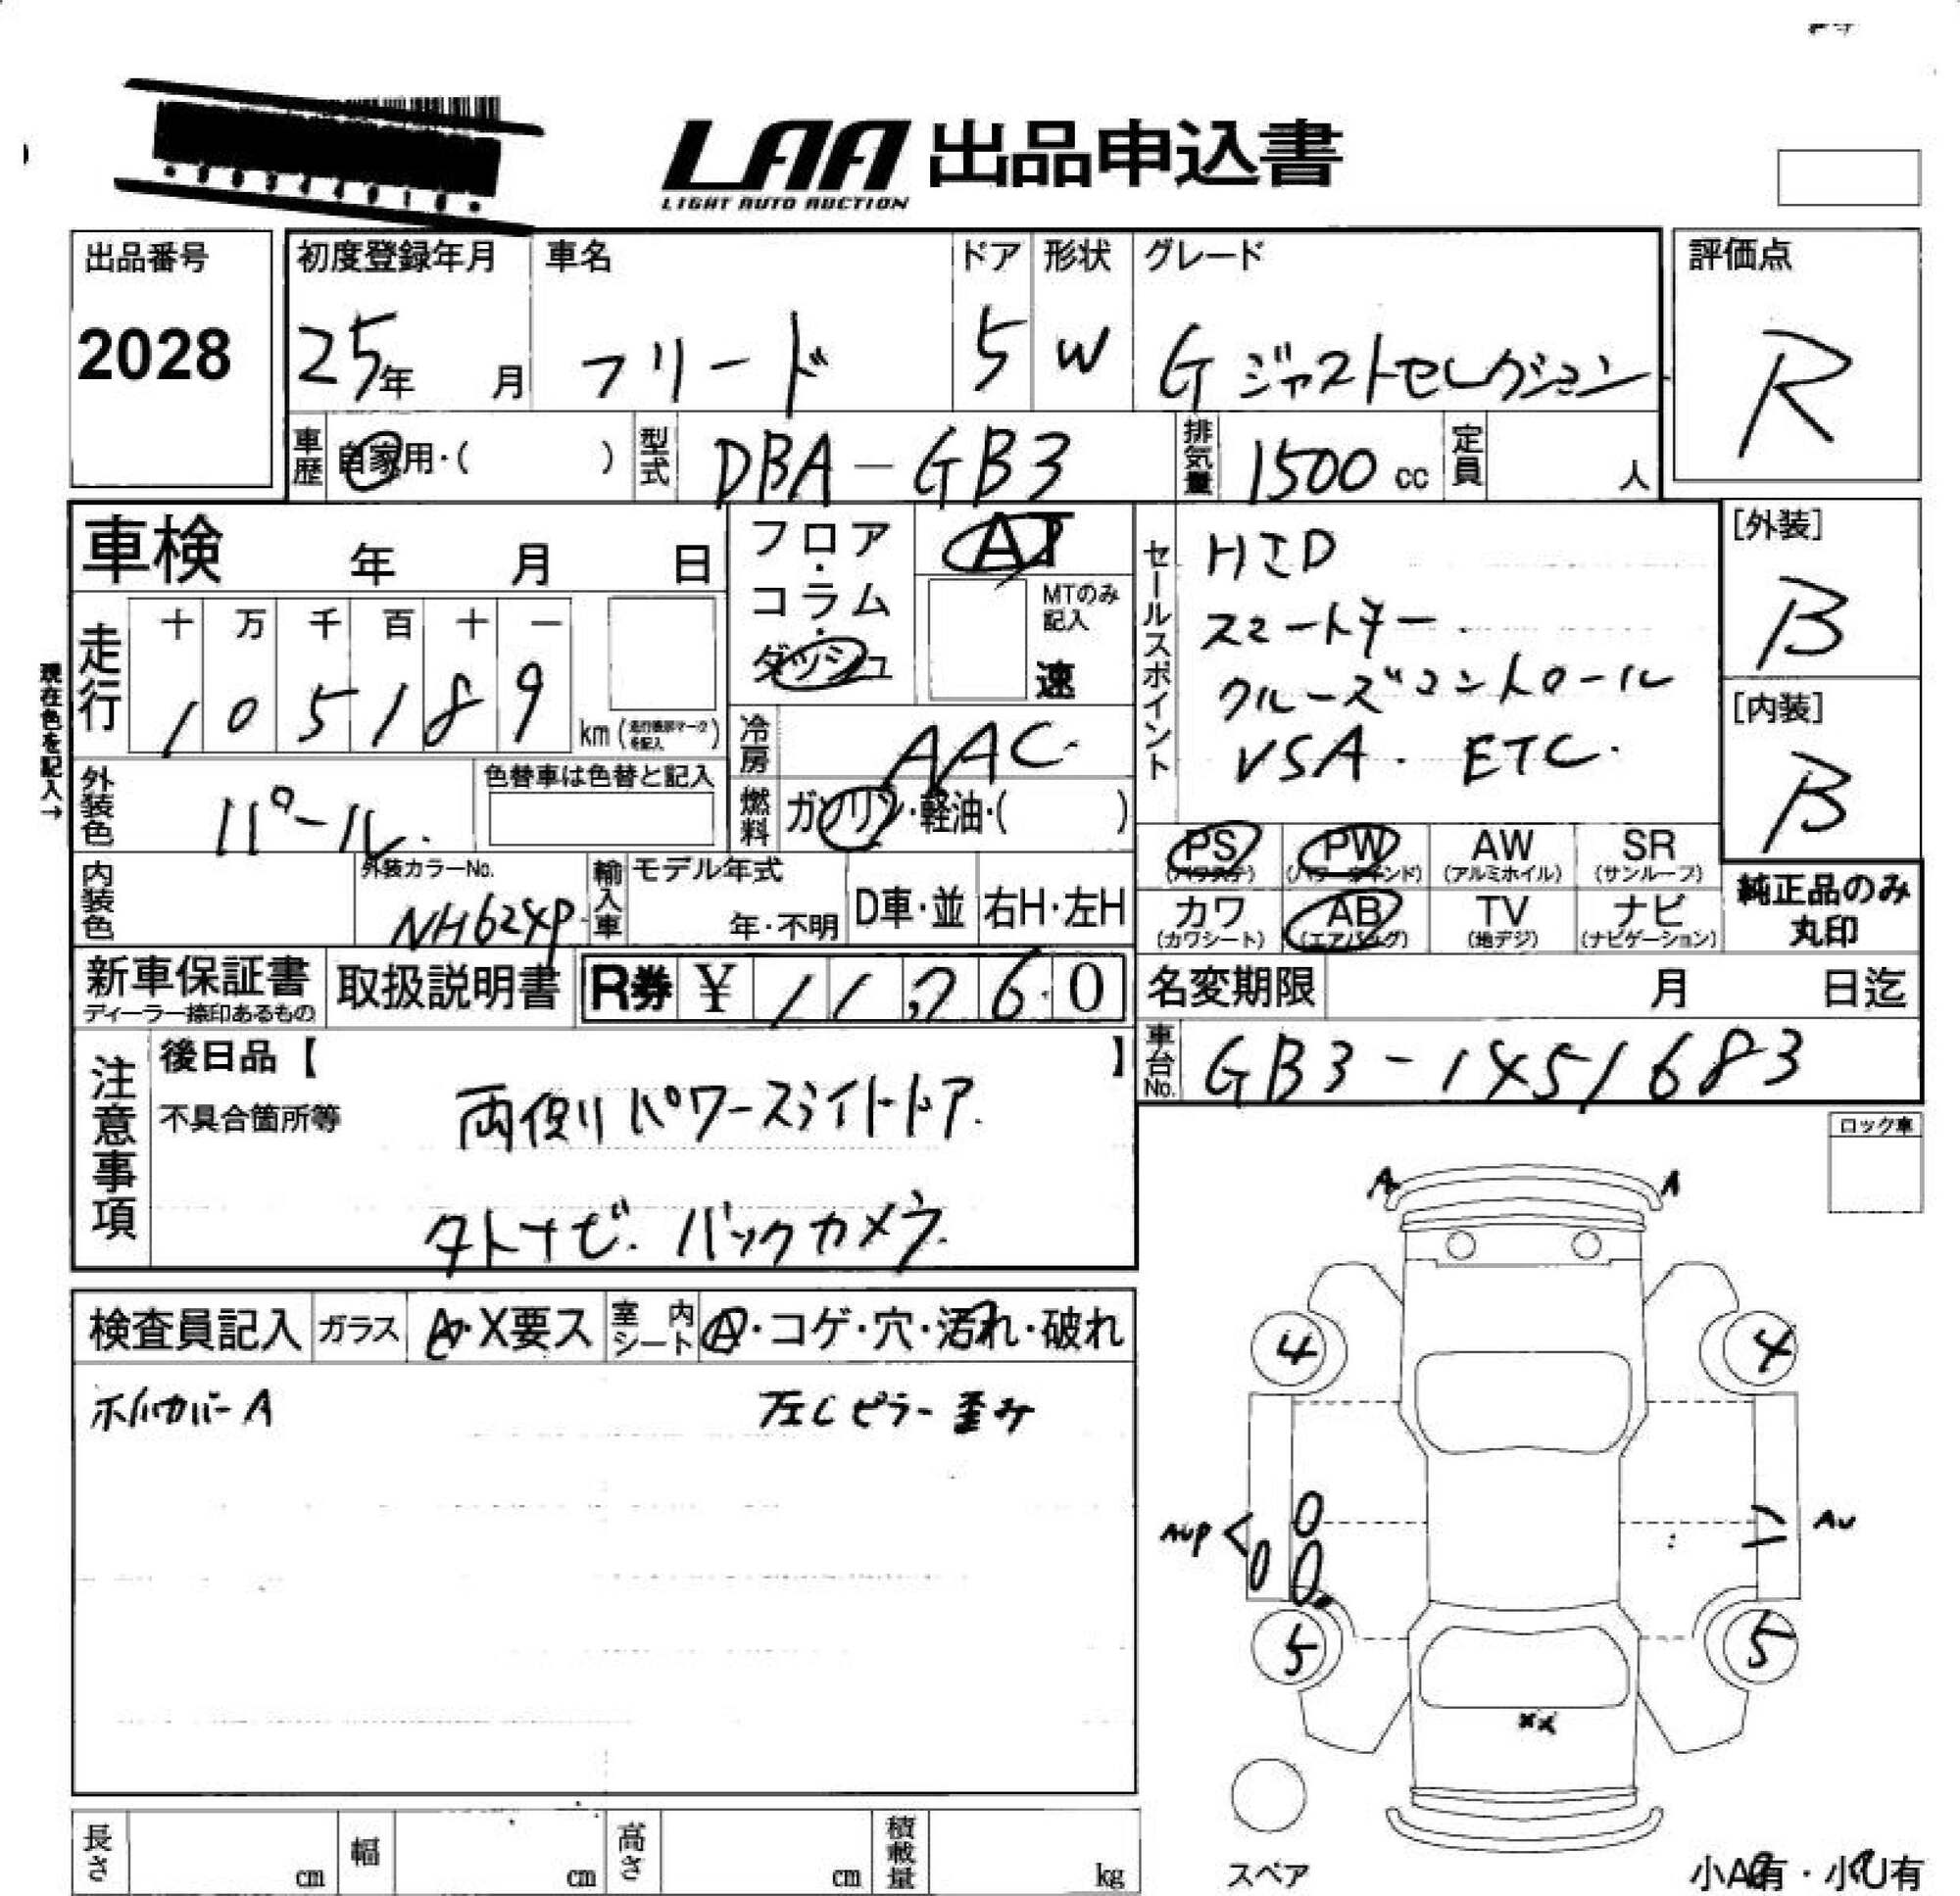 LAA 出品申込書
LIGHT AUTO AUCTION
出品番号 初度登録年月 車名 ドア 形状 グレード 評価点
2028 25年 月 フリード 5 W G ジャストセレクション R
車歴 自家用・( ) 型式 DBA-GB3 排気量 1500 cc 定員 人
車検 年 月 日
フロア・コラム・ダッシュ AT
MTのみ記入 速
セールスポイント
HID
スマートキー
クルーズコントロール
VSA. ETC.
[外装]
B
[内装]
B
現在色を記入→
走行 十 万 千 百 十 一
1 0 5 1 8 9 km
冷房 AAC
燃料 ガソリン・軽油・( )
外装色 パール. 色替車は色替と記入
PS (パワステ) PW (パワーウインド) AW (アルミホイル) SR (サンルーフ)
カワ (カワシート) AB (エアバッグ) TV (地デジ) ナビ (ナビゲーション)
純正品のみ
丸印
内装色 外装カラーNo. NH624P 輸入車 モデル年式 年・不明 D車・並 右H・左H
新車保証書 ディーラー捺印あるもの 取扱説明書 R券 ¥ 11,260
名変期限 月 日迄
車台No. GB3-1451683
注意事項 後日品【 】
不具合箇所等 両側パワースライドドア.
タトナビ. バックカメラ.
ロック車
検査員記入 ガラス A・X要ス 室内シート A・コゲ・穴・汚れ・破れ
ホイルカバーA 左Cピラー歪み
A A
4 4
AUP AU
5 5
XX
スペア
長さ cm 幅 cm 高さ cm 積載量 kg
小A有・小U有